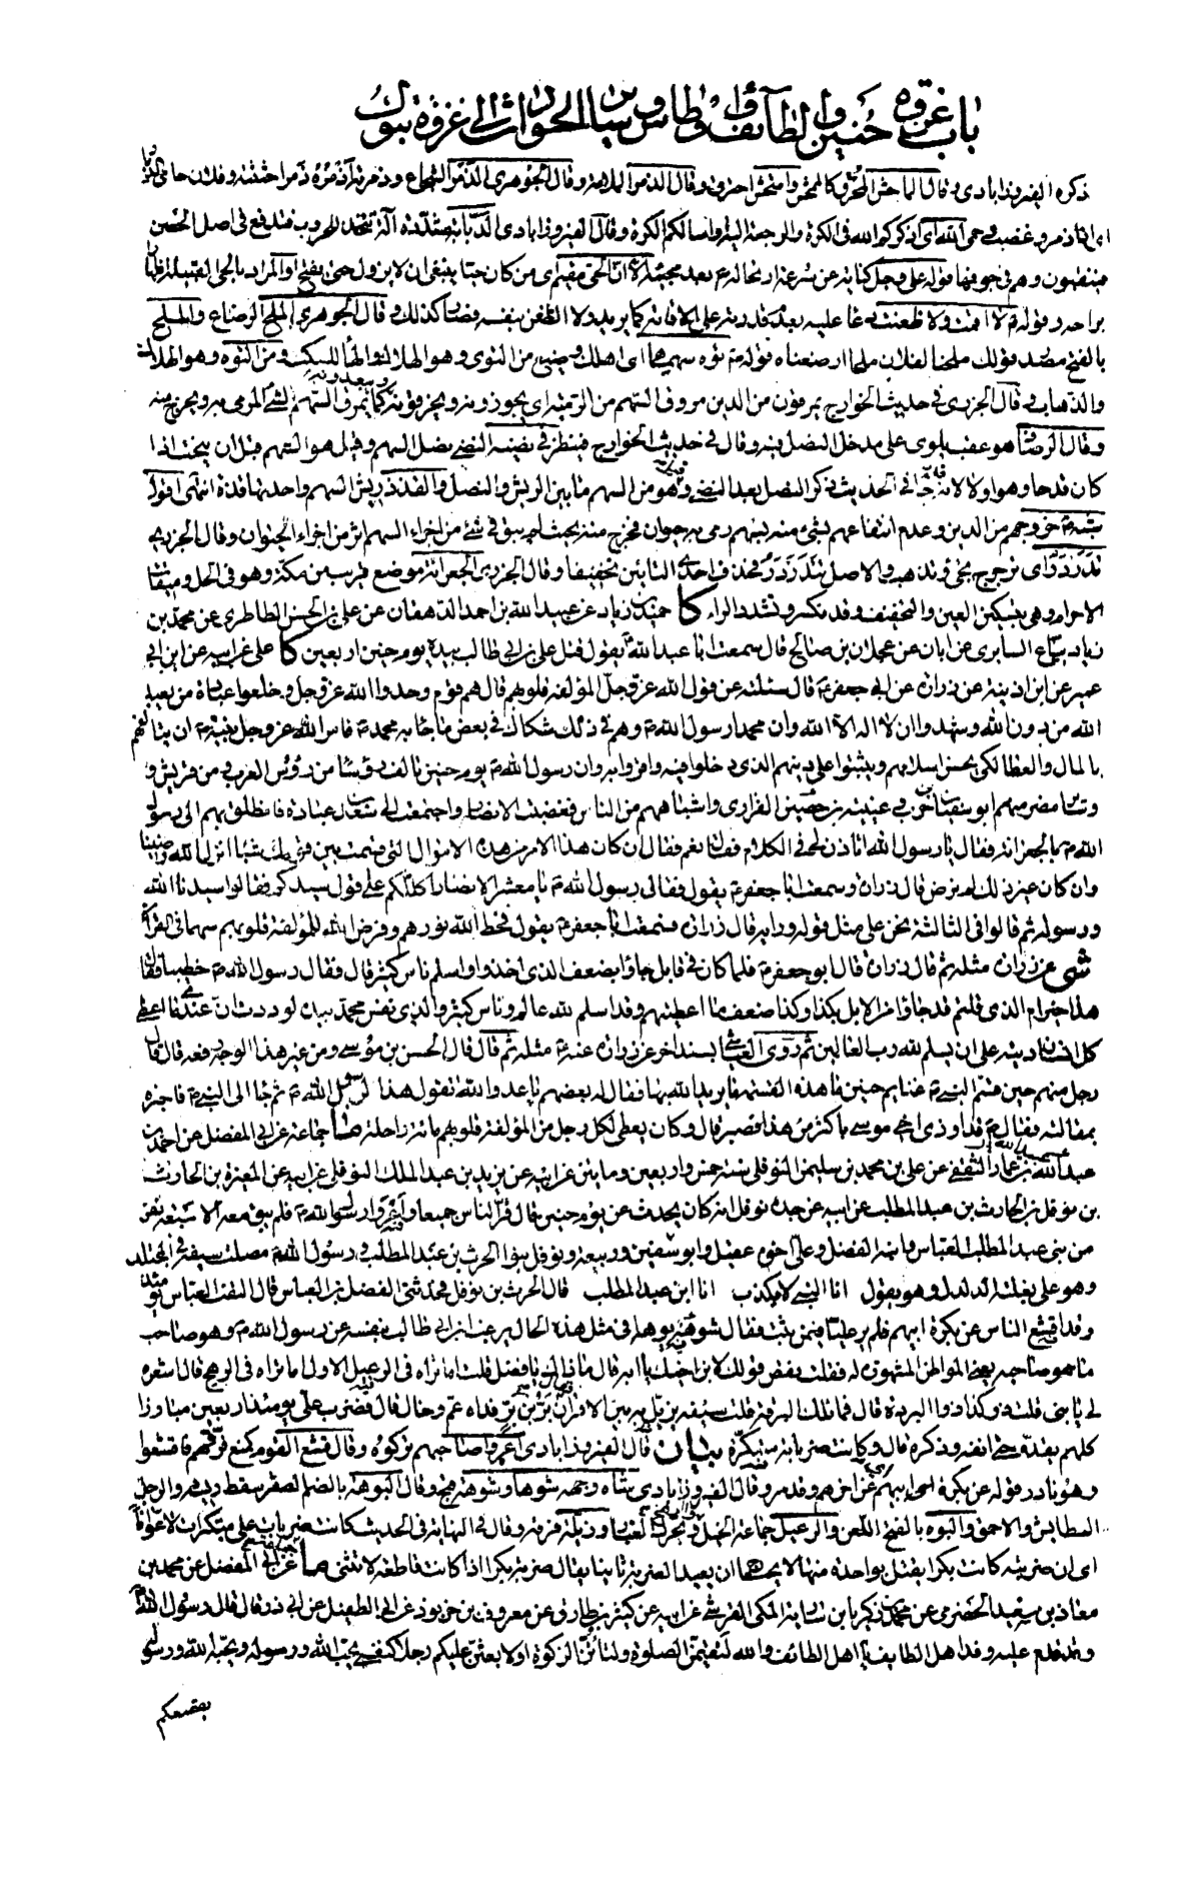 باب غزوة حنين والطائف وأوطاس وسائر الحوادث إلى غزوة تبوك
ذكره الفيروزابادي وقال الماحش المحرق كالممحش وامتحش احترق وقال الذمر الملامة وقال الجوهري الذمر الشجاع وذمرته أذمره ذمرا حثثته وفلان حامي الذمار
اي اذا ذمر وغضب حمى الله اي اذكركم الله في الكرة والرجعة اليه واسالكم الكرة وقال الفيروزابادي الدبابة مشددة آلة تتخذ للحروب فتدفع في اصل الحصن
فينقبون وهم في جوفها قوله على وجل كناية عن سرعة ارتحاله
براحه وقوله لا اقمت ولا ظعنت
بالفتح مصدر قولك ملحنا لفلان ملحا ارضعناه قوله
والذهاب وقال الجزري في حديث الخوارج يمرقون من الدين مروق السهم من الرمية اي يجوزونه ويخرقونه كما يمرق السهم الشئ المرمي به ويخرج منه
وقال الرصاف هو عقب يلوى على مدخل النصل فيه وقال في حديث الخوارج فينظر في نضيه النضي نصل السهم وقيل هو السهم قبل ان ينحت اذا
كان قدحا وهو اولى لانه قد جاء في الحديث ذكر النصل بعد النضي وقيل هو من السهم ما بين الريش والنصل والقذذ ريش السهم واحدتها قذة انتهى اقول
شبه خروجهم من الدين وعدم انتفاعهم بشئ منه بسهم رمي به حيوان فخرج منه بحيث لم يبق في شئ من اجزاء السهم اثر من اجزاء الحيوان وقال الجزري
تدردر اي ترجرج تجئ وتذهب والاصل تتدردر فحذف احدى التائين تخفيفا وقال الجزري الجعرانة موضع قريب من مكة وهو في الحل وميقات
الاحرام وهي بتسكين العين والتخفيف وقد تكسر وتشدد الراء كا حميد بن زياد عن عبيد الله بن احمد الدهقان عن علي بن الحسن الطاطري عن محمد بن
زياد بياع السابري عن ابان عن عجلان بن صالح قال سمعت ابا عبد الله يقول قتل علي بن ابي طالب بيده يوم حنين اربعين كا علي عن ابيه عن ابن ابي
عمير عن ابن اذينة عن زرارة عن ابي جعفر قال سئلته عن قول الله عز وجل المؤلفة قلوبهم قال هم قوم وحدوا الله عز وجل وخلعوا عبادة من يعبد
الله من دون الله وشهدوا ان لا اله الا الله وان محمدا رسول الله وهم في ذلك شكاك في بعض ما جاء به محمد فامر الله عز وجل نبيه ان يتالفهم
بالمال والعطا لكي يحسن اسلامهم ويثبتوا على دينهم الذي دخلوا فيه واقروا به وان رسول الله يوم حنين تالف رؤسا من رؤس العرب من قريش و
وسائر مضر منهم ابو سفيان بن حرب وعيينة بن حصين الفزاري واشباههم من الناس فغضبت الانصار واجتمعت الى سعد بن عبادة فانطلق بهم الى رسول
الله بالجعرانة فقال يا رسول الله اتاذن لي في الكلام فقال نعم فقال ان كان هذا الامر من هذه الاموال التي قسمت بين قومك شيئا انزله الله رضينا
وان كان غير ذلك لم نرض قال زرارة وسمعت ابا جعفر يقول فقال رسول الله يا معشر الانصار اكلكم على قول سيدكم فقالوا سيدنا الله
ورسوله ثم قالوا في الثالثة نحن على مثل قوله ورايه قال زرارة فسمعت ابا جعفر يقول فحط الله نورهم وفرض الله للمؤلفة قلوبهم سهما في القران
شى عن زرارة مثله ثم قال زرارة قال ابو جعفر فلما كان في قابل جاؤا بضعف الذي اخذوا واسلم ناس كثير قال فقام رسول الله خطيبا فقال
هذا خير ام الذي قلتم قد جاؤا من الابل بكذا وكذا ضعف ما اعطيتهم وقد اسلم لله عالم وناس كثير والذي نفس محمد بيده لوددت ان عندي ما اعطي
كل انسان ديته على ان يسلم لله رب العالمين ثم روى العياشي بسند اخر عن زرارة عنه مثله ثم قال قال الحسن بن موسى ومن غير هذا الوجه رفعه قال قال
رجل منهم حين قسم النبي غنايم حنين ما هذه القسمة ما يريد الله بها فقال له بعضهم يا عدو الله تقول هذا لرسول الله ثم جاء الى النبي فاخبره
بمقالته فقال قد اوذي اخي موسى باكثر من هذا فصبر قال وكان يعطي لكل رجل من المؤلفة قلوبهم مائة راحلة ما جماعة عن ابي المفضل عن احمد بن
عبيد الله بن عمار الثقفي عن علي بن محمد بن سليمن النوفلي سنة خمس واربعين ومايتين عن ابيه عن يزيد بن عبد الملك النوفلي عن ابيه عن المغيرة بن الحارث
بن نوفل بن الحارث بن عبد المطلب عن ابيه عن جده نوفل انه كان يحدث عن يوم حنين قال فر الناس جميعا واعروا رسول الله فلم يبق معه الا سبعة نفر
من بني عبد المطلب العباس وابنه الفضل وعلي واخوه عقيل وابو سفين وربيعة ونوفل بنو الحرث بن عبد المطلب ورسول الله مصلت سيفه في المجتلد
وهو على بغلته الدلدل وهو يقول انا النبي لا كذب انا ابن عبد المطلب قال الحرث بن نوفل فحدثني الفضل بن العباس قال التفت العباس يومئذ
وقد اقشع الناس عن بكرة ابيهم فلم ير عليا فيمن ثبت فقال شوهة بوهة افي مثل هذه الحال يرغب ابن ابي طالب بنفسه عن رسول الله وهو صاحب
ما هو صاحبه يعني المواطن المشهورة له فقلت نقص قولك لابن اخيك يا ابه قال ما ذاك يا فضل قلت اما تراه في الرعيل الاول اما تراه في الرهج قال اشعره
لي يا بني قلت ذو كذا ذو البردة قال فما تلك البرقة قلت سيفه يزيل به بين الاقران فقال بر بن بر فداه عم وخال قال فضرب علي يومئذ اربعين مبارزا
كلهم يقده حتى انفه وذكره قال وكانت ضرباته مبتكرة بيان قال الفيروزابادي اعروا صاحبهم تركوه وقال قشع القوم كمنع فرقهم فاقشعوا
وهو نادر قوله عن بكرة ابيهم اي عن اخرهم وقد مر وقال الفيروزابادي شاه وجهه شوها وشوهة قبح وقال البوهة بالضم الصقر يسقط ريشه والرجل
الطايش والاحمق والبوه بالفتح اللعن والرعيل جماعة الخيل وقال في النهاية في الحديث كانت ضربات علي مبتكرات لا عونا
اي ان ضربته كانت بكرا يقتل بواحدة منها لا يحتاج ان يعيد الضربة ثانيا يقال ضربة بكر اذا كانت قاطعة لا تثنى ما جماعة عن ابي المفضل عن محمد بن
معاذ بن سعيد الحضرمي عن محمد بن زكريا بن سارية المكي القرشي عن ابيه عن كثير بن طارق عن معروف بن خربوذ عن ابي الطفيل عن ابي ذر قال قال رسول الله
وقد قدم عليه وفد اهل الطايف يا اهل الطائف والله لتقيمن الصلوة ولتاتن الزكوة او لابعثن عليكم رجلا كنفسي يحب الله ورسوله ويحبه الله ورسوله
يقصعكم